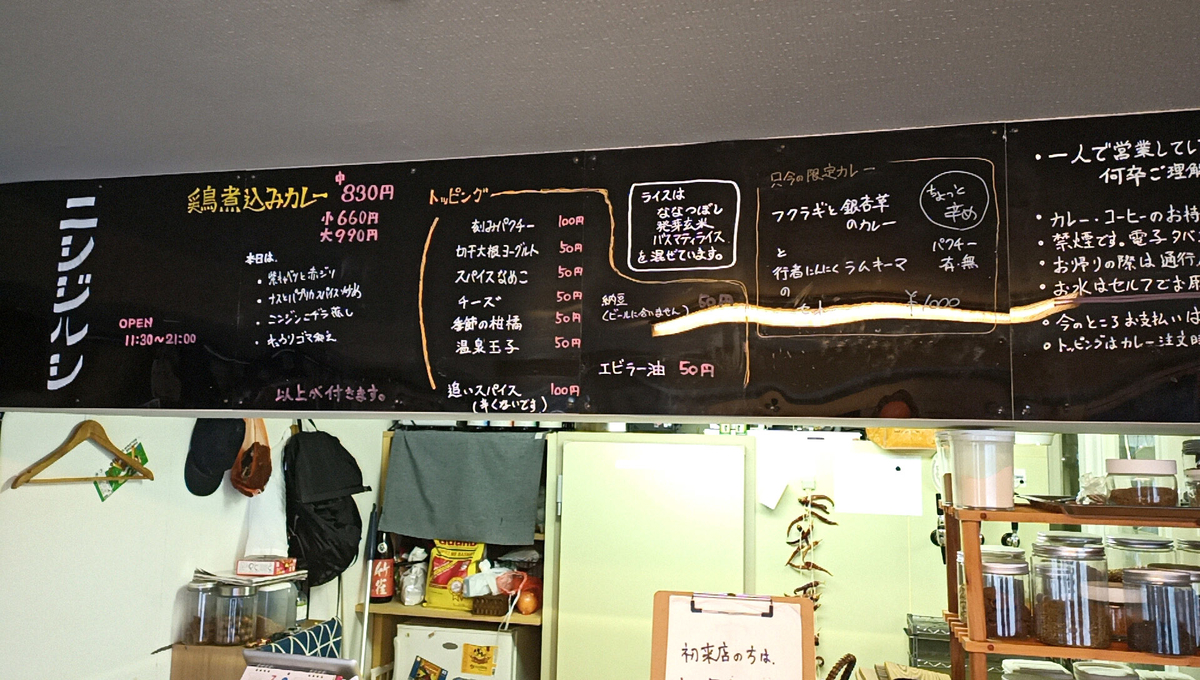 ニシジルシ
OPEN
11:30〜21:00
鶏煮込みカレー 中 830円
小 660円
大 990円
本日は、
・紫キャベツと赤ジソ
・ナスとパプリカスパイス炒め
・ニンジンニナラ蒸し
・キュウリゴマ和え
以上が付きます。
トッピング
刻みパクチー 100円
切干大根ヨーグルト 50円
スパイスなめこ 50円
チーズ 50円
季節の柑橘 50円
温泉玉子 50円
追いスパイス 100円
(辛くないです)
ライスは
ななつぼし
発芽玄米
バスマティライス
を混ぜています。
納豆 50円
(ビールに合いません)
エビラー油 50円
只今の限定カレー
フクラギと銀杏草
のカレー
と
行者にんにくラムキーマ
の
¥1000
ちょっと
辛め
パクチー
有・無
・一人で営業してい
何卒ご理解
・カレー・コーヒーのお持
・禁煙です。電子タバ
・お帰りの際は通行
・お水はセルフでお
・今のところお支払いは
・トッピングはカレー注文時
竹雀
初来店の方は、